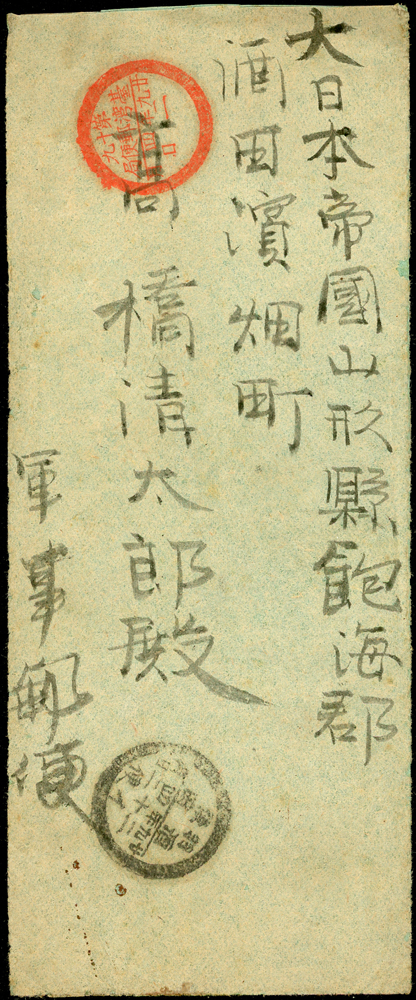 大日本帝國山形縣飽海郡
酒田濱畑町
高橋清太郎殿
軍事郵便